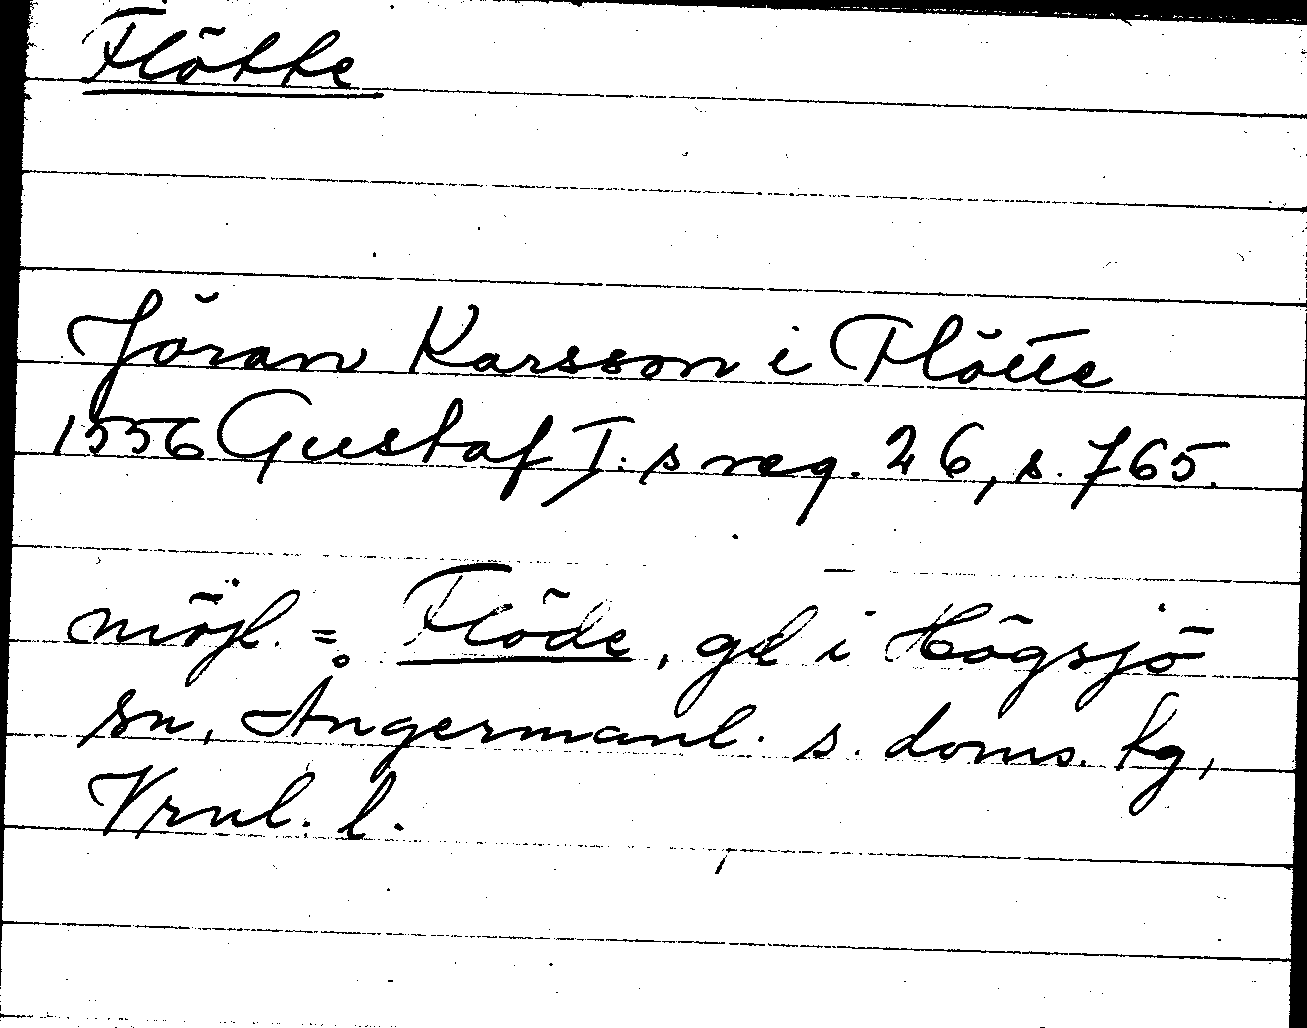 Flötte
Jöran Karsson i Flötte
1556 Gustaf I:s reg. 26, s. 765.
möjl. = Flöde, gd i Högsjö
sn, Ångermanl. s. doms. kg,
Vrnl. l.